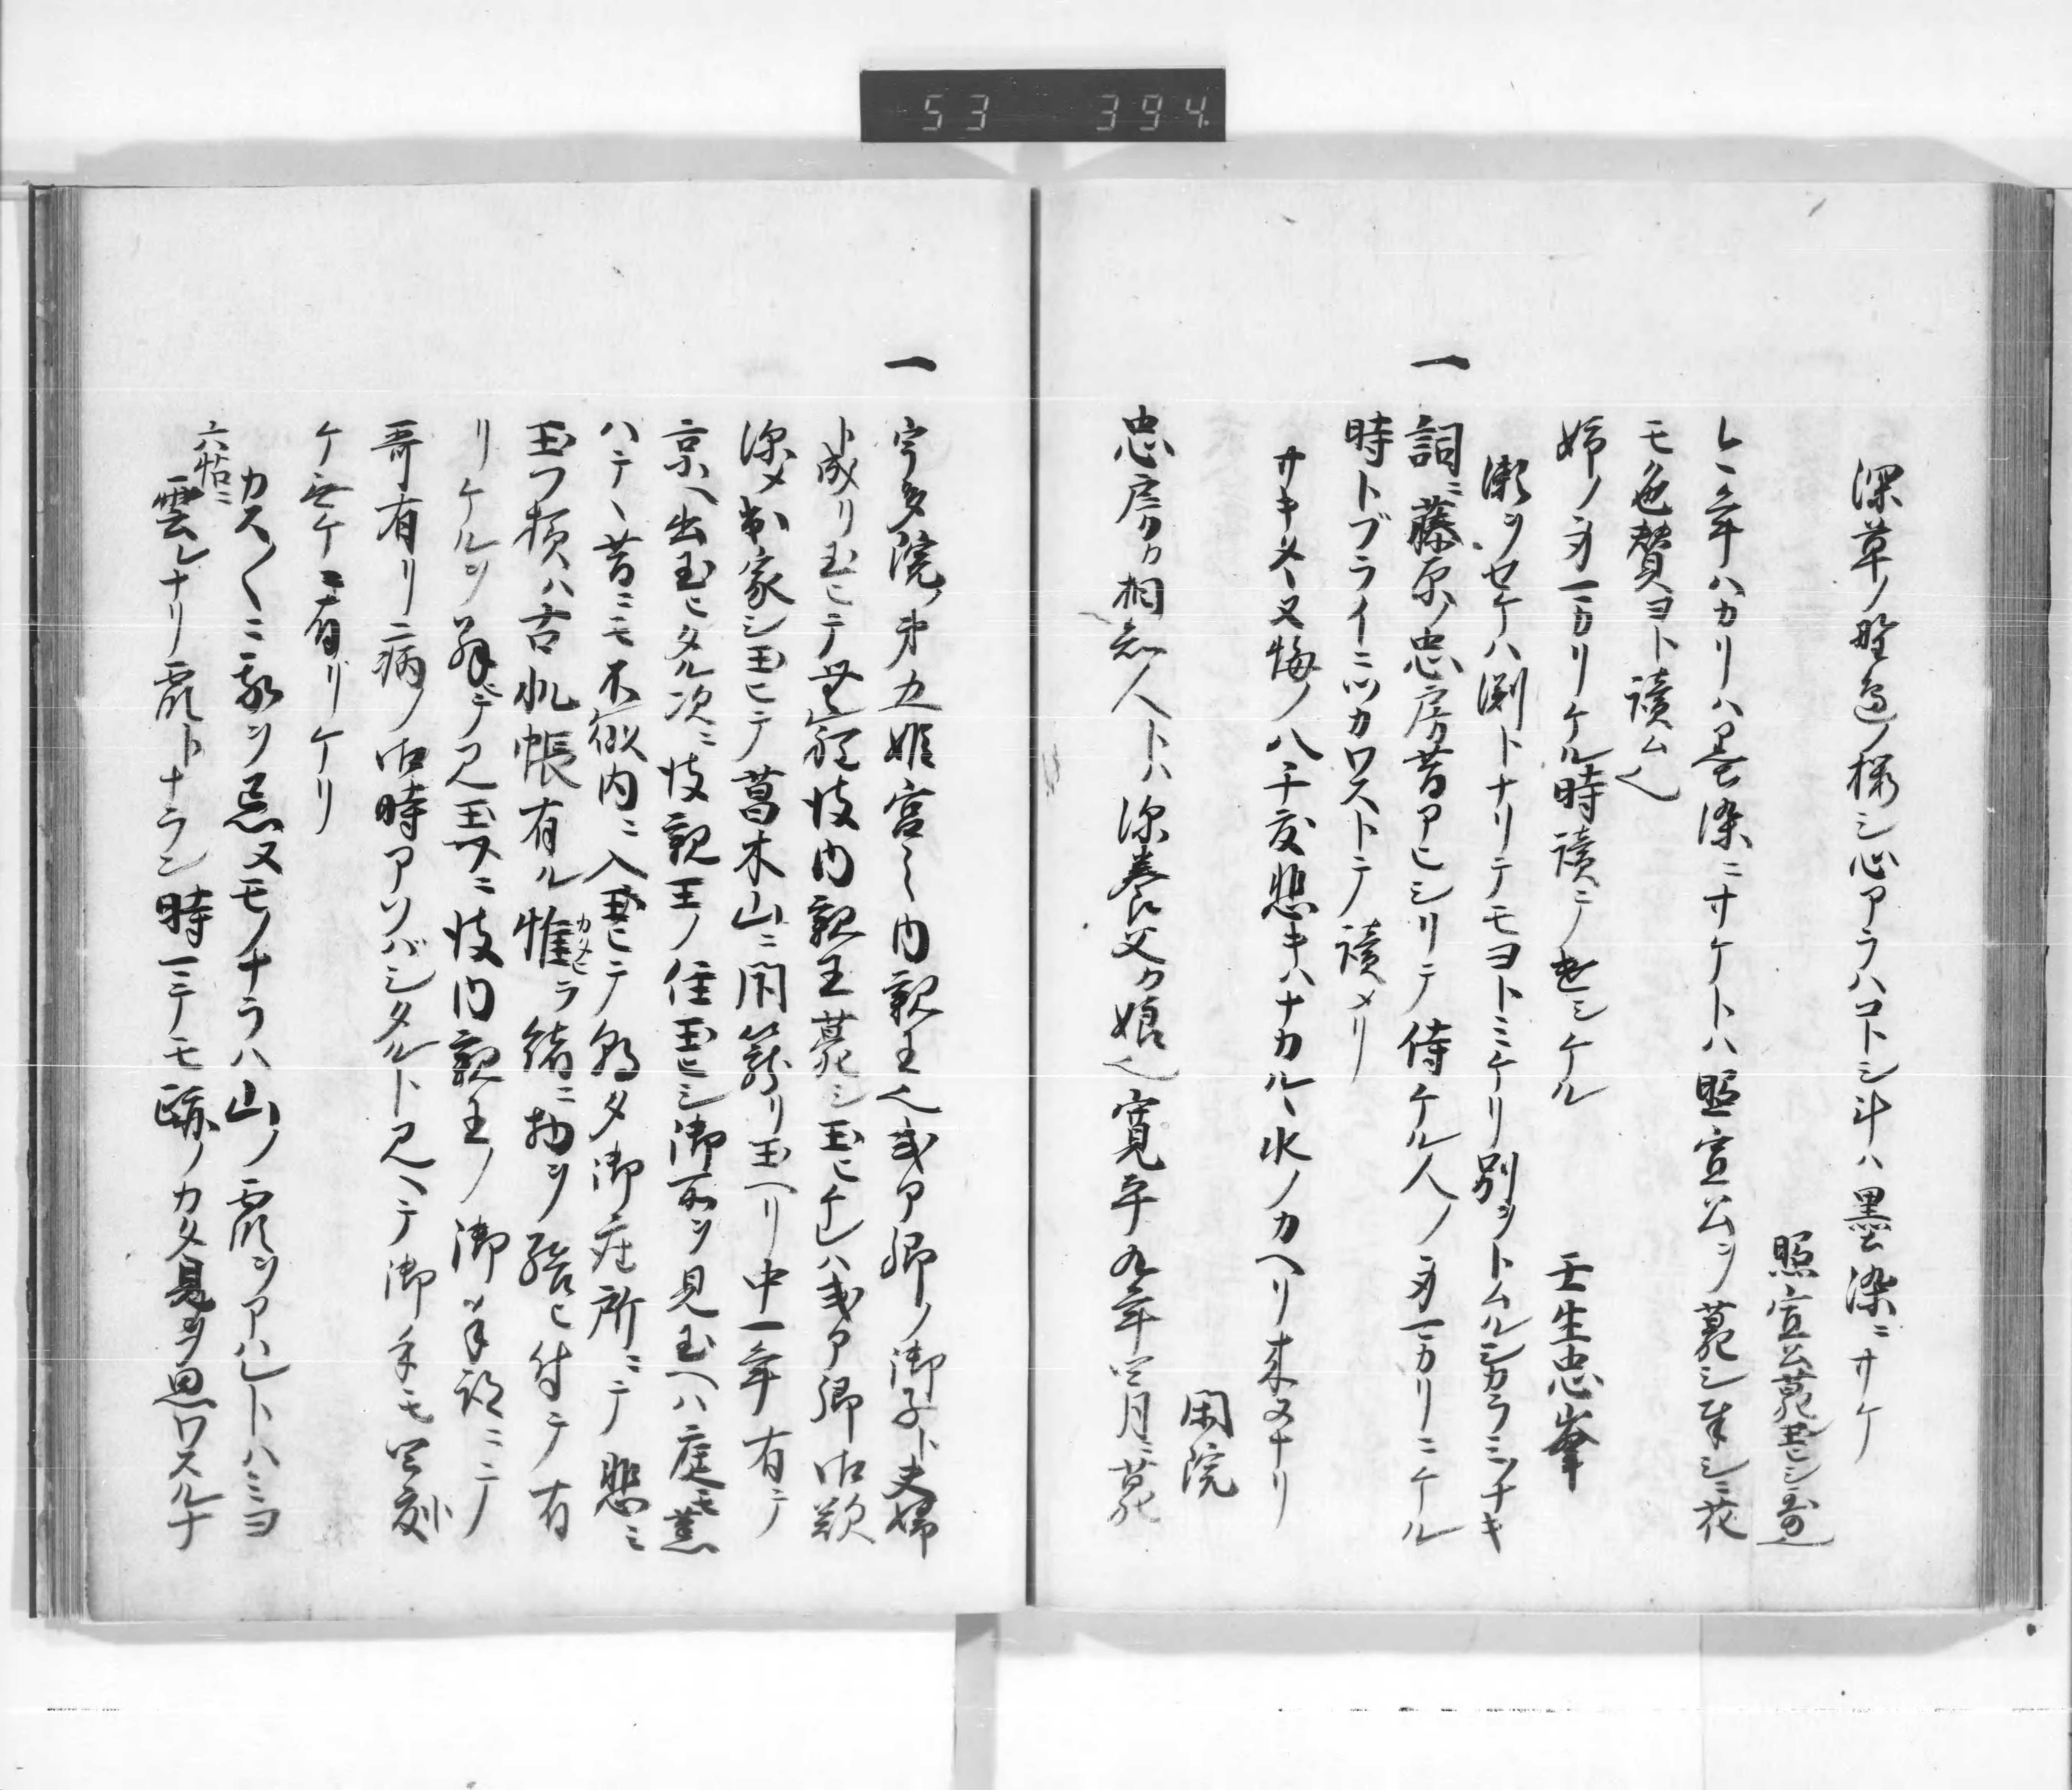 53 394
深草ノ野邊ノ櫻シ心アラハコトシ斗ハ墨染ニサケ
照宣公薨玉シ哥也
トハ年ハカリハ墨染ニサケトハ照宣公ヲ薨シ花
モ色賛ヨト讀ム也
姉ノ身マカリケル時讀ミケル 壬生忠峯
瀬ヲセケハ渕トナリテモヨトミケリ別ヲトムルシカラミソナキ
一 詞ニ藤原ノ忠房昔アヒシリテ侍ケル人ノ身マカリニケル
時トブライニツカワストテ讀メリ
サキタヽヌ悔ノ八千度悲キハナカルヽ水ノカヘリ来ヌナリ
閑院
忠房カ相知人トハ源養父カ娘也寛平九年四月ニ薨
一 宇多院ノ第五姫宮ノ内親王也式ア卿ノ御子ト夫婦
ト成リ玉ヒテ 内親王薨シ玉ヒケレハ式ア卿御歎
深メ出家シ玉ヒテ葛木山ニ閇籠リ玉ヘリ中一年有テ
京ヘ出玉ヒタル次ニ彼親王ノ住玉ヒシ御所ヲ見玉ヘハ庭モ
ハテヽ昔ニモ不似内ニ入玉ヒテ御座所ニテ悲ミ
玉フ損ハ古几帳有ル惟ラ緒ニ物ヲ結ヒ付テ有
リケルヲ解テ見玉フニ彼内親王ノ御手跡ニテ
哥有リ病ノ御時アソバシタルト見ヘテ御手モ
ケニ有リケリ
カスノ〱ニ我ヲ忘ヌモノナラハ山ノ霞ヲアハレトハミヨ
六帖ニ
雲レナリ霞トナラン時ミテモ跡ノカタ見ヲ思ワスルナ